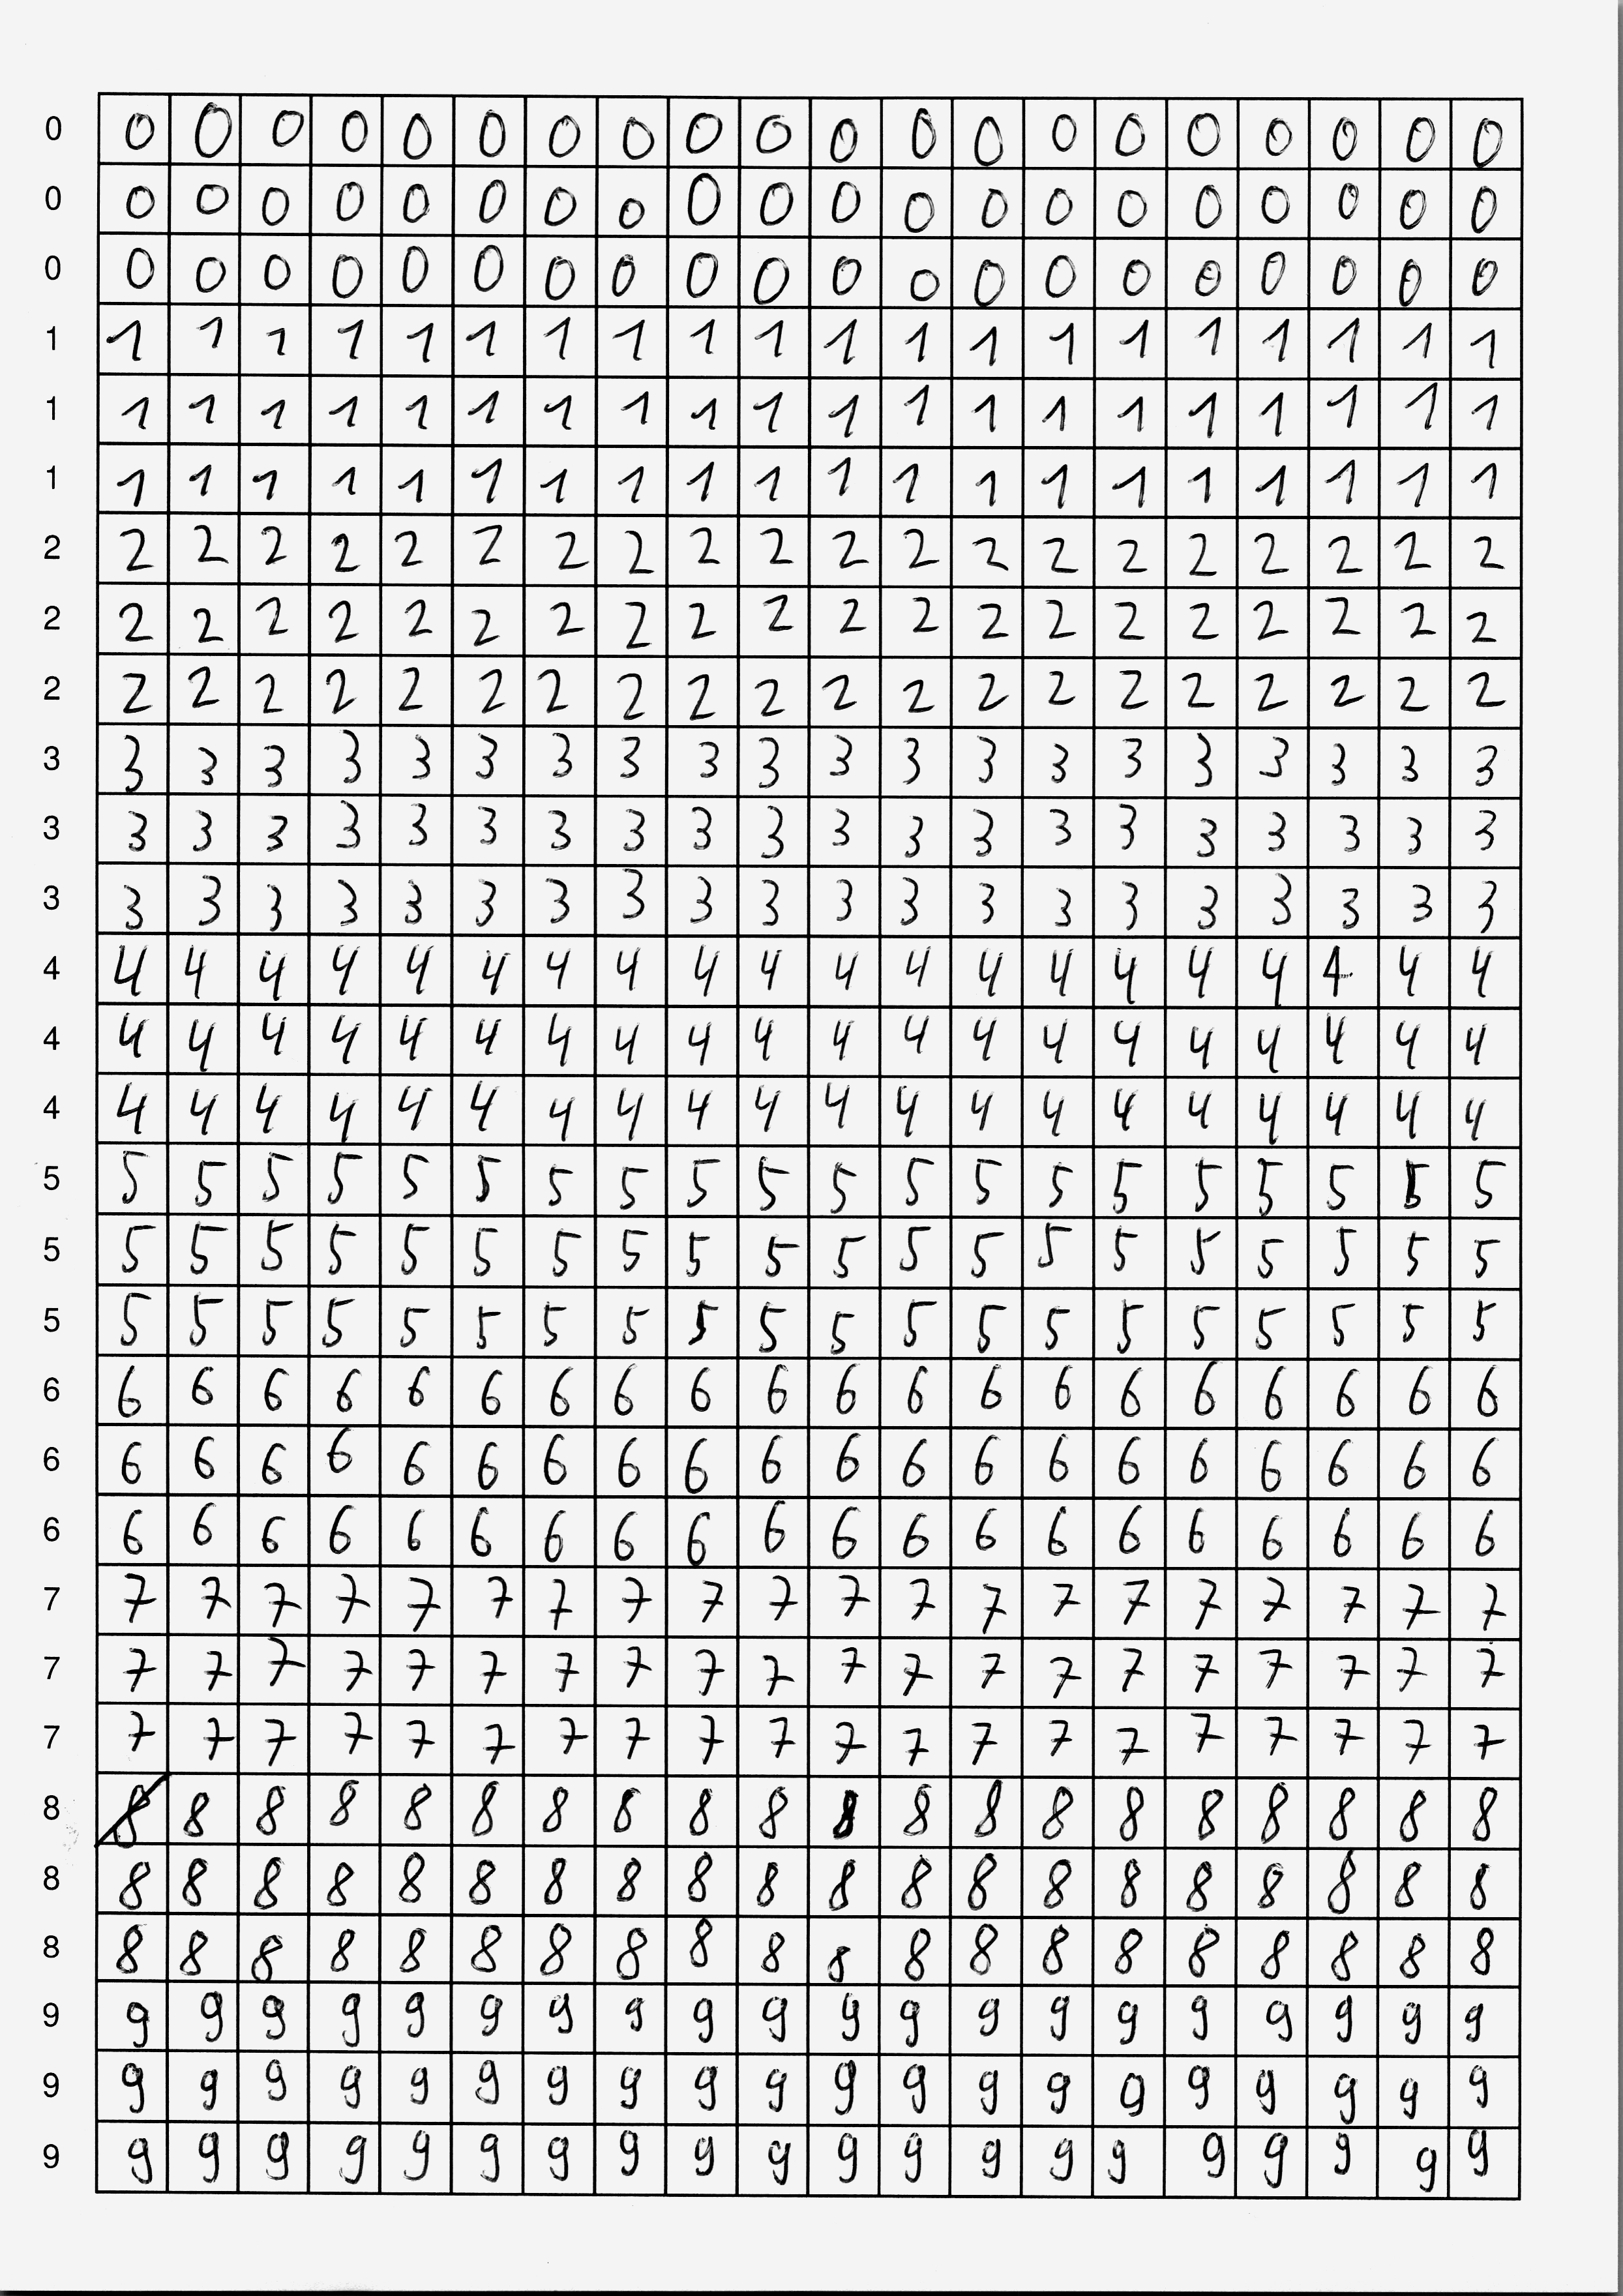 0 0 0 0 0 0 0 0 0 0 0 0 0 0 0 0 0 0 0 0 0
0 0 0 0 0 0 0 0 0 0 0 0 0 0 0 0 0 0 0 0 0
0 0 0 0 0 0 0 0 0 0 0 0 0 0 0 0 0 0 0 0 0
1 1 1 1 1 1 1 1 1 1 1 1 1 1 1 1 1 1 1 1 1
1 1 1 1 1 1 1 1 1 1 1 1 1 1 1 1 1 1 1 1 1
1 1 1 1 1 1 1 1 1 1 1 1 1 1 1 1 1 1 1 1 1
2 2 2 2 2 2 2 2 2 2 2 2 2 2 2 2 2 2 2 2 2
2 2 2 2 2 2 2 2 2 2 2 2 2 2 2 2 2 2 2 2 2
2 2 2 2 2 2 2 2 2 2 2 2 2 2 2 2 2 2 2 2 2
3 3 3 3 3 3 3 3 3 3 3 3 3 3 3 3 3 3 3 3 3
3 3 3 3 3 3 3 3 3 3 3 3 3 3 3 3 3 3 3 3 3
3 3 3 3 3 3 3 3 3 3 3 3 3 3 3 3 3 3 3 3 3
4 4 4 4 4 4 4 4 4 4 4 4 4 4 4 4 4 4 4 4 4
4 4 4 4 4 4 4 4 4 4 4 4 4 4 4 4 4 4 4 4 4
4 4 4 4 4 4 4 4 4 4 4 4 4 4 4 4 4 4 4 4 4
5 5 5 5 5 5 5 5 5 5 5 5 5 5 5 5 5 5 5 5 5
5 5 5 5 5 5 5 5 5 5 5 5 5 5 5 5 5 5 5 5 5
5 5 5 5 5 5 5 5 5 5 5 5 5 5 5 5 5 5 5 5 5
6 6 6 6 6 6 6 6 6 6 6 6 6 6 6 6 6 6 6 6 6
6 6 6 6 6 6 6 6 6 6 6 6 6 6 6 6 6 6 6 6 6
6 6 6 6 6 6 6 6 6 6 6 6 6 6 6 6 6 6 6 6 6
7 7 7 7 7 7 7 7 7 7 7 7 7 7 7 7 7 7 7 7 7
7 7 7 7 7 7 7 7 7 7 7 7 7 7 7 7 7 7 7 7 7
7 7 7 7 7 7 7 7 7 7 7 7 7 7 7 7 7 7 7 7 7
8 8 8 8 8 8 8 8 8 8 8 8 8 8 8 8 8 8 8 8 8
8 8 8 8 8 8 8 8 8 8 8 8 8 8 8 8 8 8 8 8 8
8 8 8 8 8 8 8 8 8 8 8 8 8 8 8 8 8 8 8 8 8
9 9 9 9 9 9 9 9 9 9 9 9 9 9 9 9 9 9 9 9 9
9 9 9 9 9 9 9 9 9 9 9 9 9 9 9 9 9 9 9 9 9
9 9 9 9 9 9 9 9 9 9 9 9 9 9 9 9 9 9 9 9 9